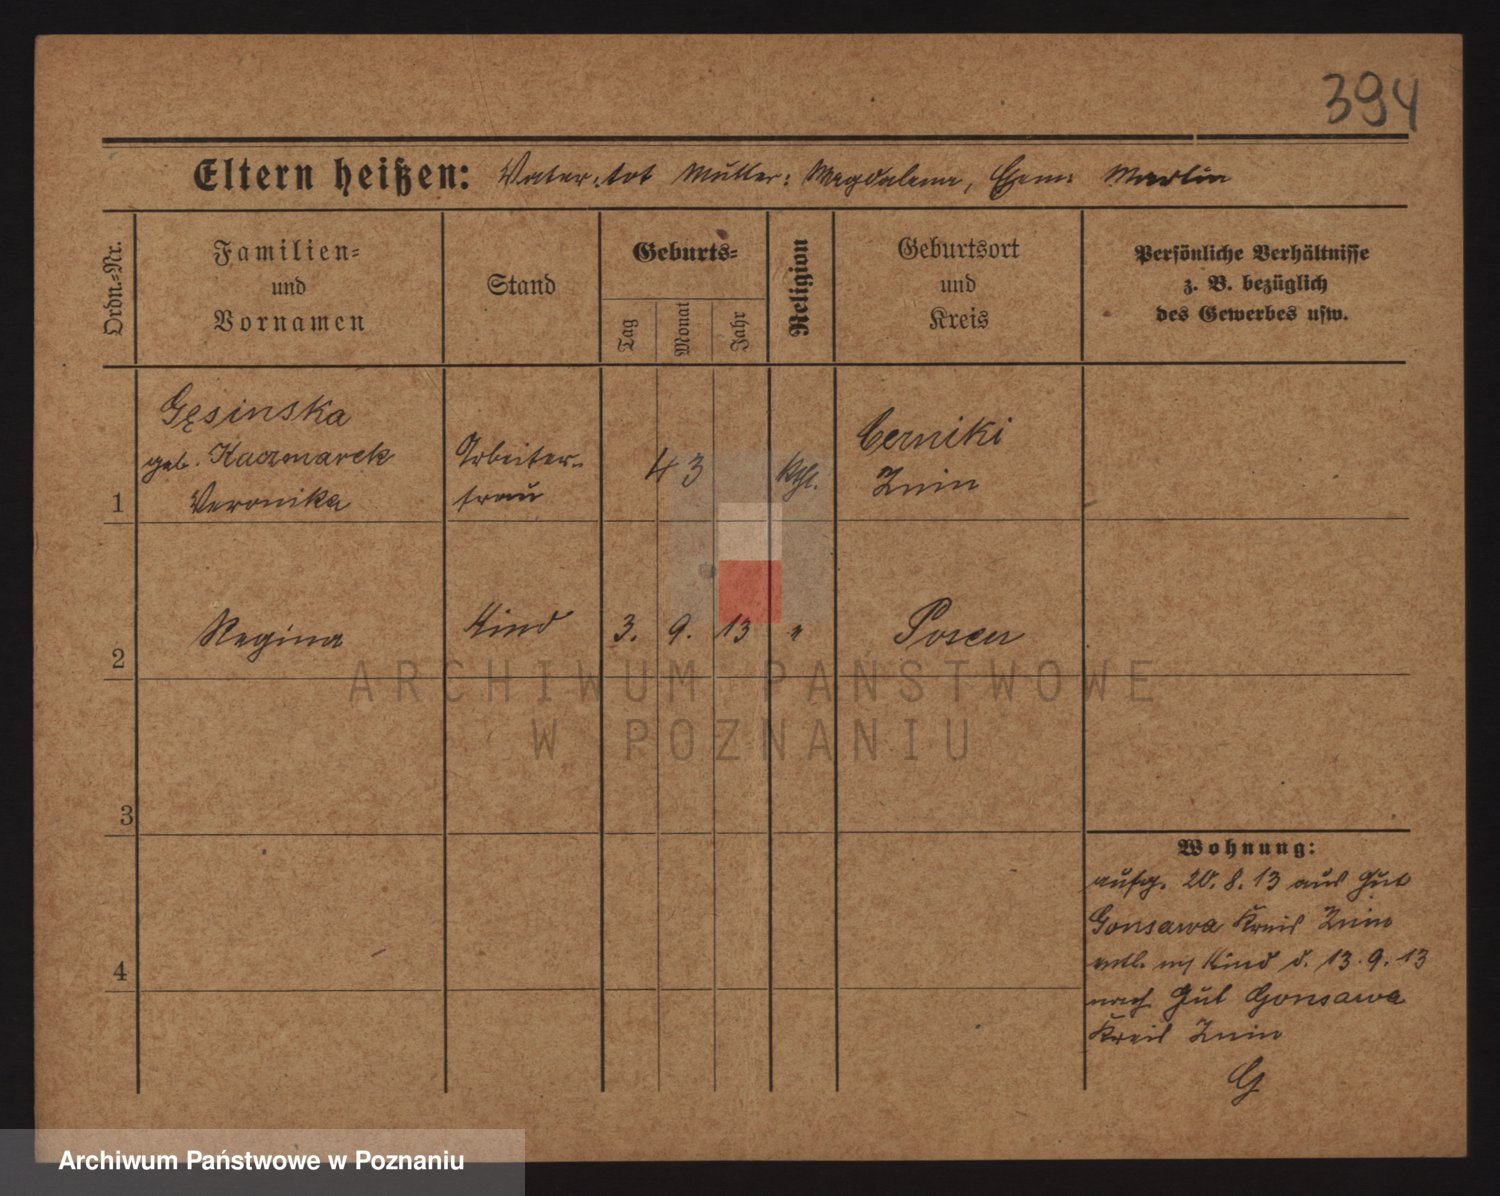 394
Eltern heißen: Vater: tot Mutter: Magdalena, Ehem: Martin
Ordn.-Nr.
Familien-
und
Vornamen
Stand
Geburts-
Tag
Monat
Jahr
Religion
Geburtsort
und
Kreis
Persönliche Verhältnisse
z. B. bezüglich
des Gewerbes usw.
1
Gęsinska
geb. Kaczmarek
Veronika
Arbeiter-
frau
43
kth.
Cerniki
Znin
2
Regina
Kind
3. 9. 13
"
Posen
3
4
Wohnung:
aufg. 20. 8. 13 aus Gut
Gonsawa Kreis Znin
entl. m/ Kind d. 13. 9. 13
nach Gut Gonsawa
Kreis Znin
G
ARCHIWUM PAŃSTWOWE
W POZNANIU
Archiwum Państwowe w Poznaniu